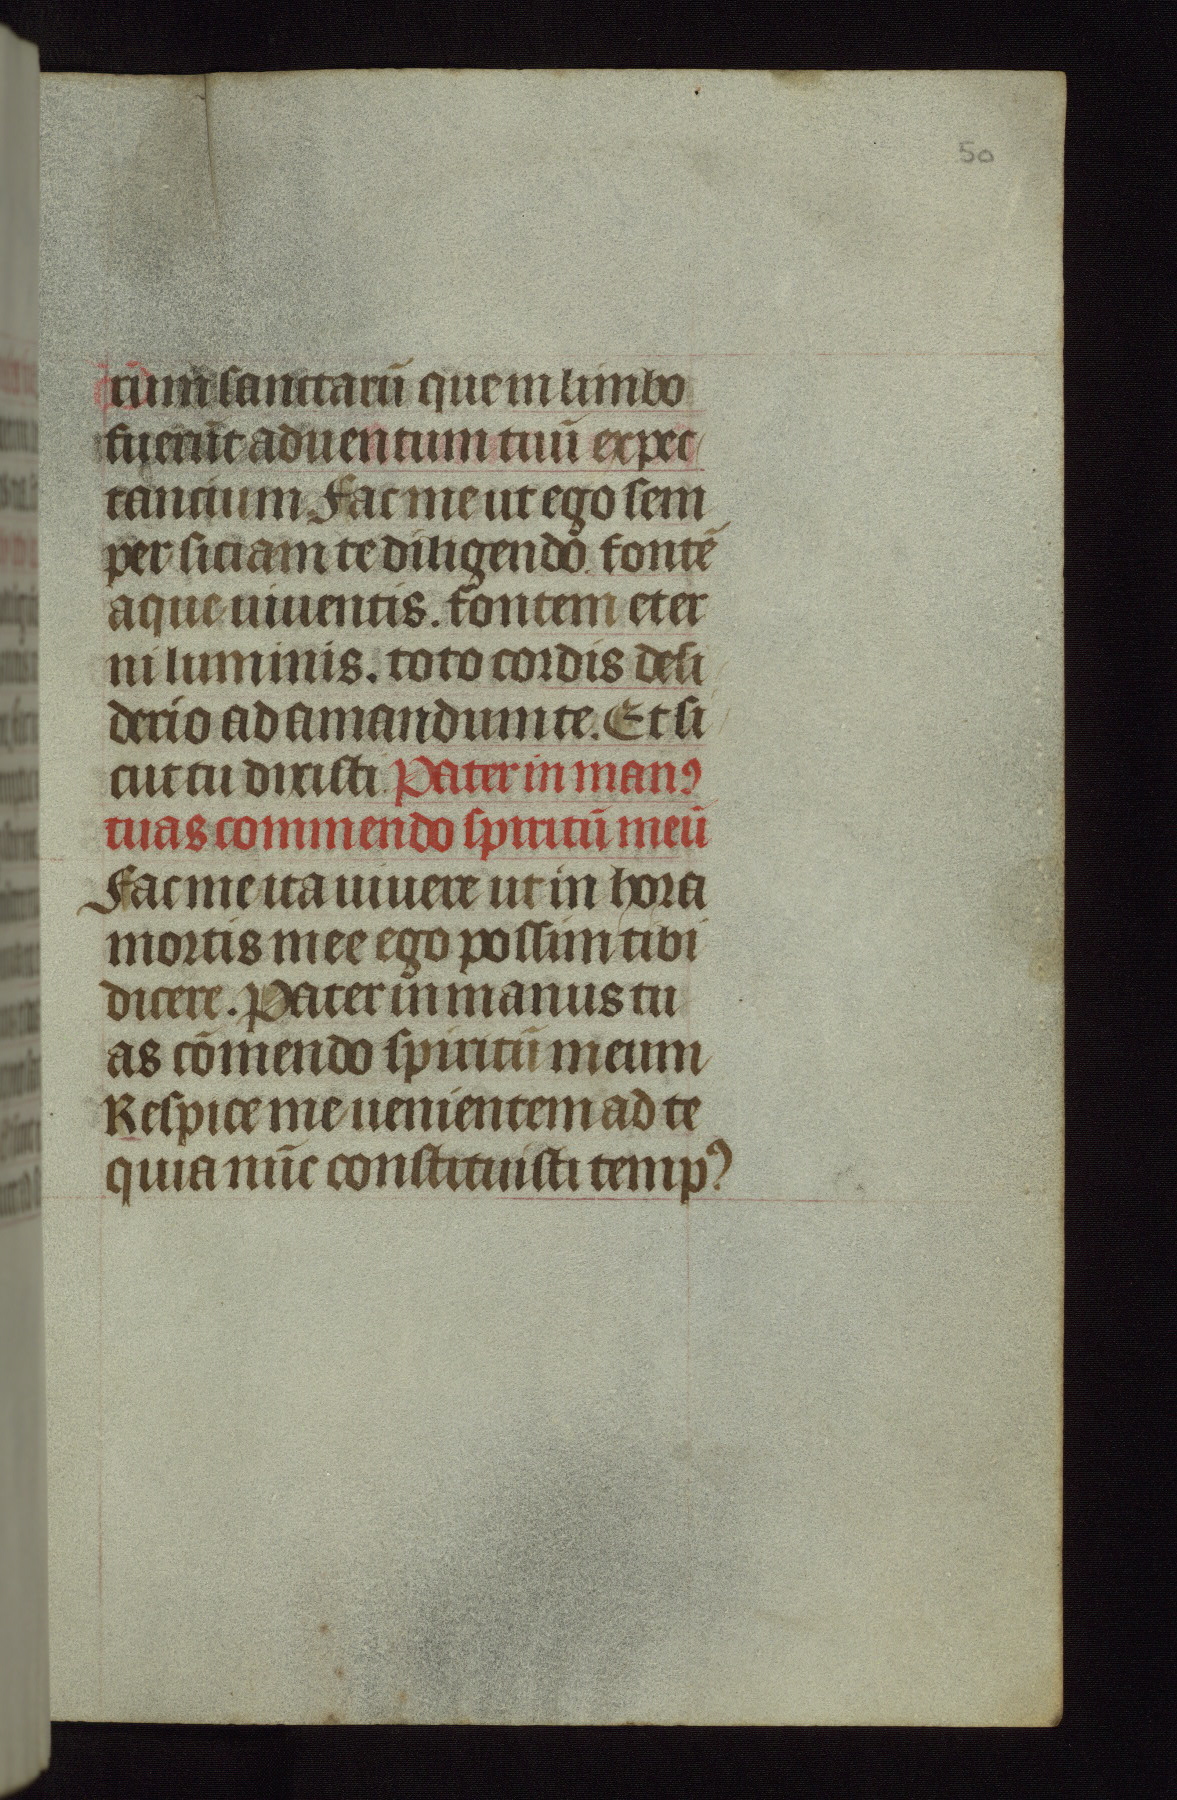 50
tum sanctarū que in limbo
fuerūt aduentum tuū expec
tancium Fac me ut ego sem
per siciam te diligendo fontē
aque uiuentis. fontem eter
ni luminis. toto cordis desi
derio ad amandum te. Et si
cut tu dixisti Pater in manꝯ
tuas commendo spiritū meū
Fac me ita uiuere ut in hora
mortis mee ego possim tibi
dicere. Pater in manus tu
as cōmendo spiritū meum
Respice me uenientem ad te
quia nūc constituisti tempꝰ